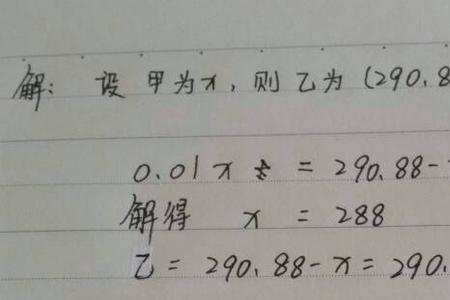 解: 设 甲为x, 则 乙为 (290.8
0.01x = 290.88-
解得 x = 288
乙= 290.88-x=290.